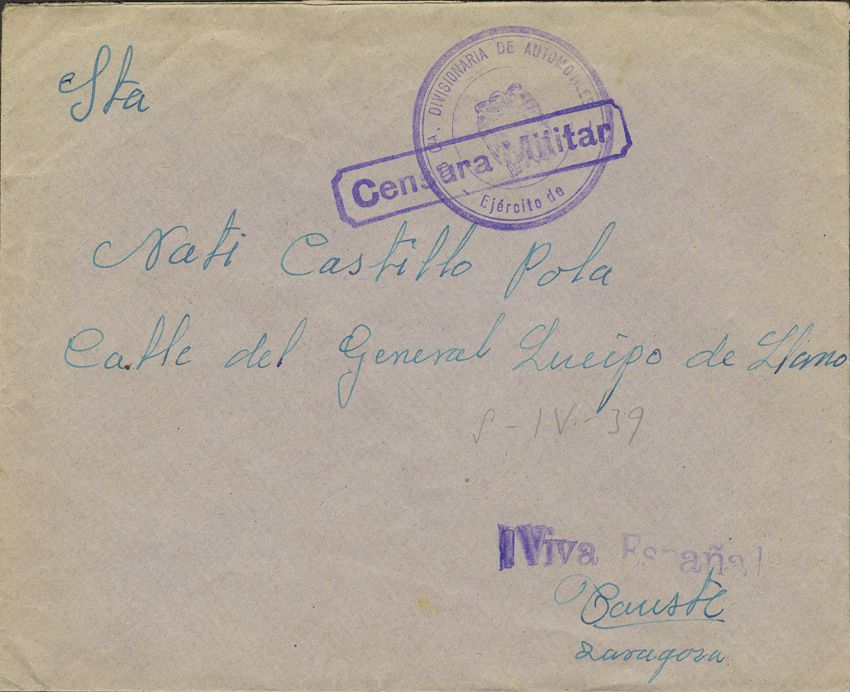 Sta
CIA. DIVISIONARIA DE AUTOMOVILES
Ejército de
Censura Militar
Nati Castillo Pola
Calle del General Queipo de Llano
IV-39
¡Viva España!
Tauste
Zaragoza